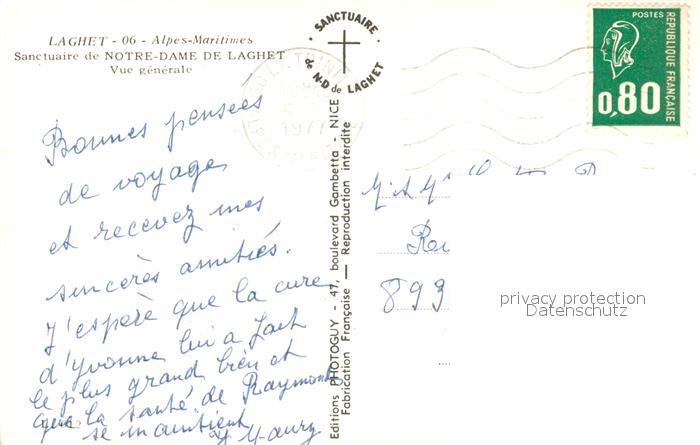 LAGHET - 06 - Alpes-Maritimes
Sanctuaire de NOTRE-DAME DE LAGHET
Vue générale
SANCTUAIRE
de N-D de LAGHET
POSTES
REPUBLIQUE FRANÇAISE
0,80
LA TRINITE
1977
Bonnes pensées
de voyage
et recevez mes
sincères amitiés.
J'espère que la cure
d'Yvonne lui a fait
le plus grand bien et
que la santé de Raymonde
se maintient
Editions PHOTOGUY - 47, boulevard Gambetta - NICE
Fabrication Française — Reproduction interdite
899
privacy protection
Datenschutz